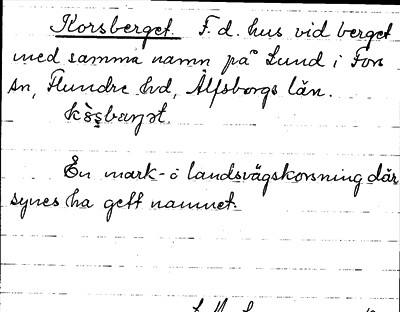 Korsberget. F. d. hus vid berget
med samma namn på Lund i Fors
sn, Flundre hd, Älfsborgs län.
En mark- o landsvägskorsning där
synes ha gett namnet.